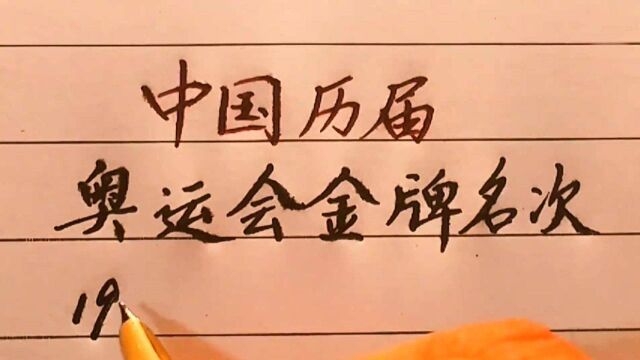 中国历届
奥运会金牌名次
19